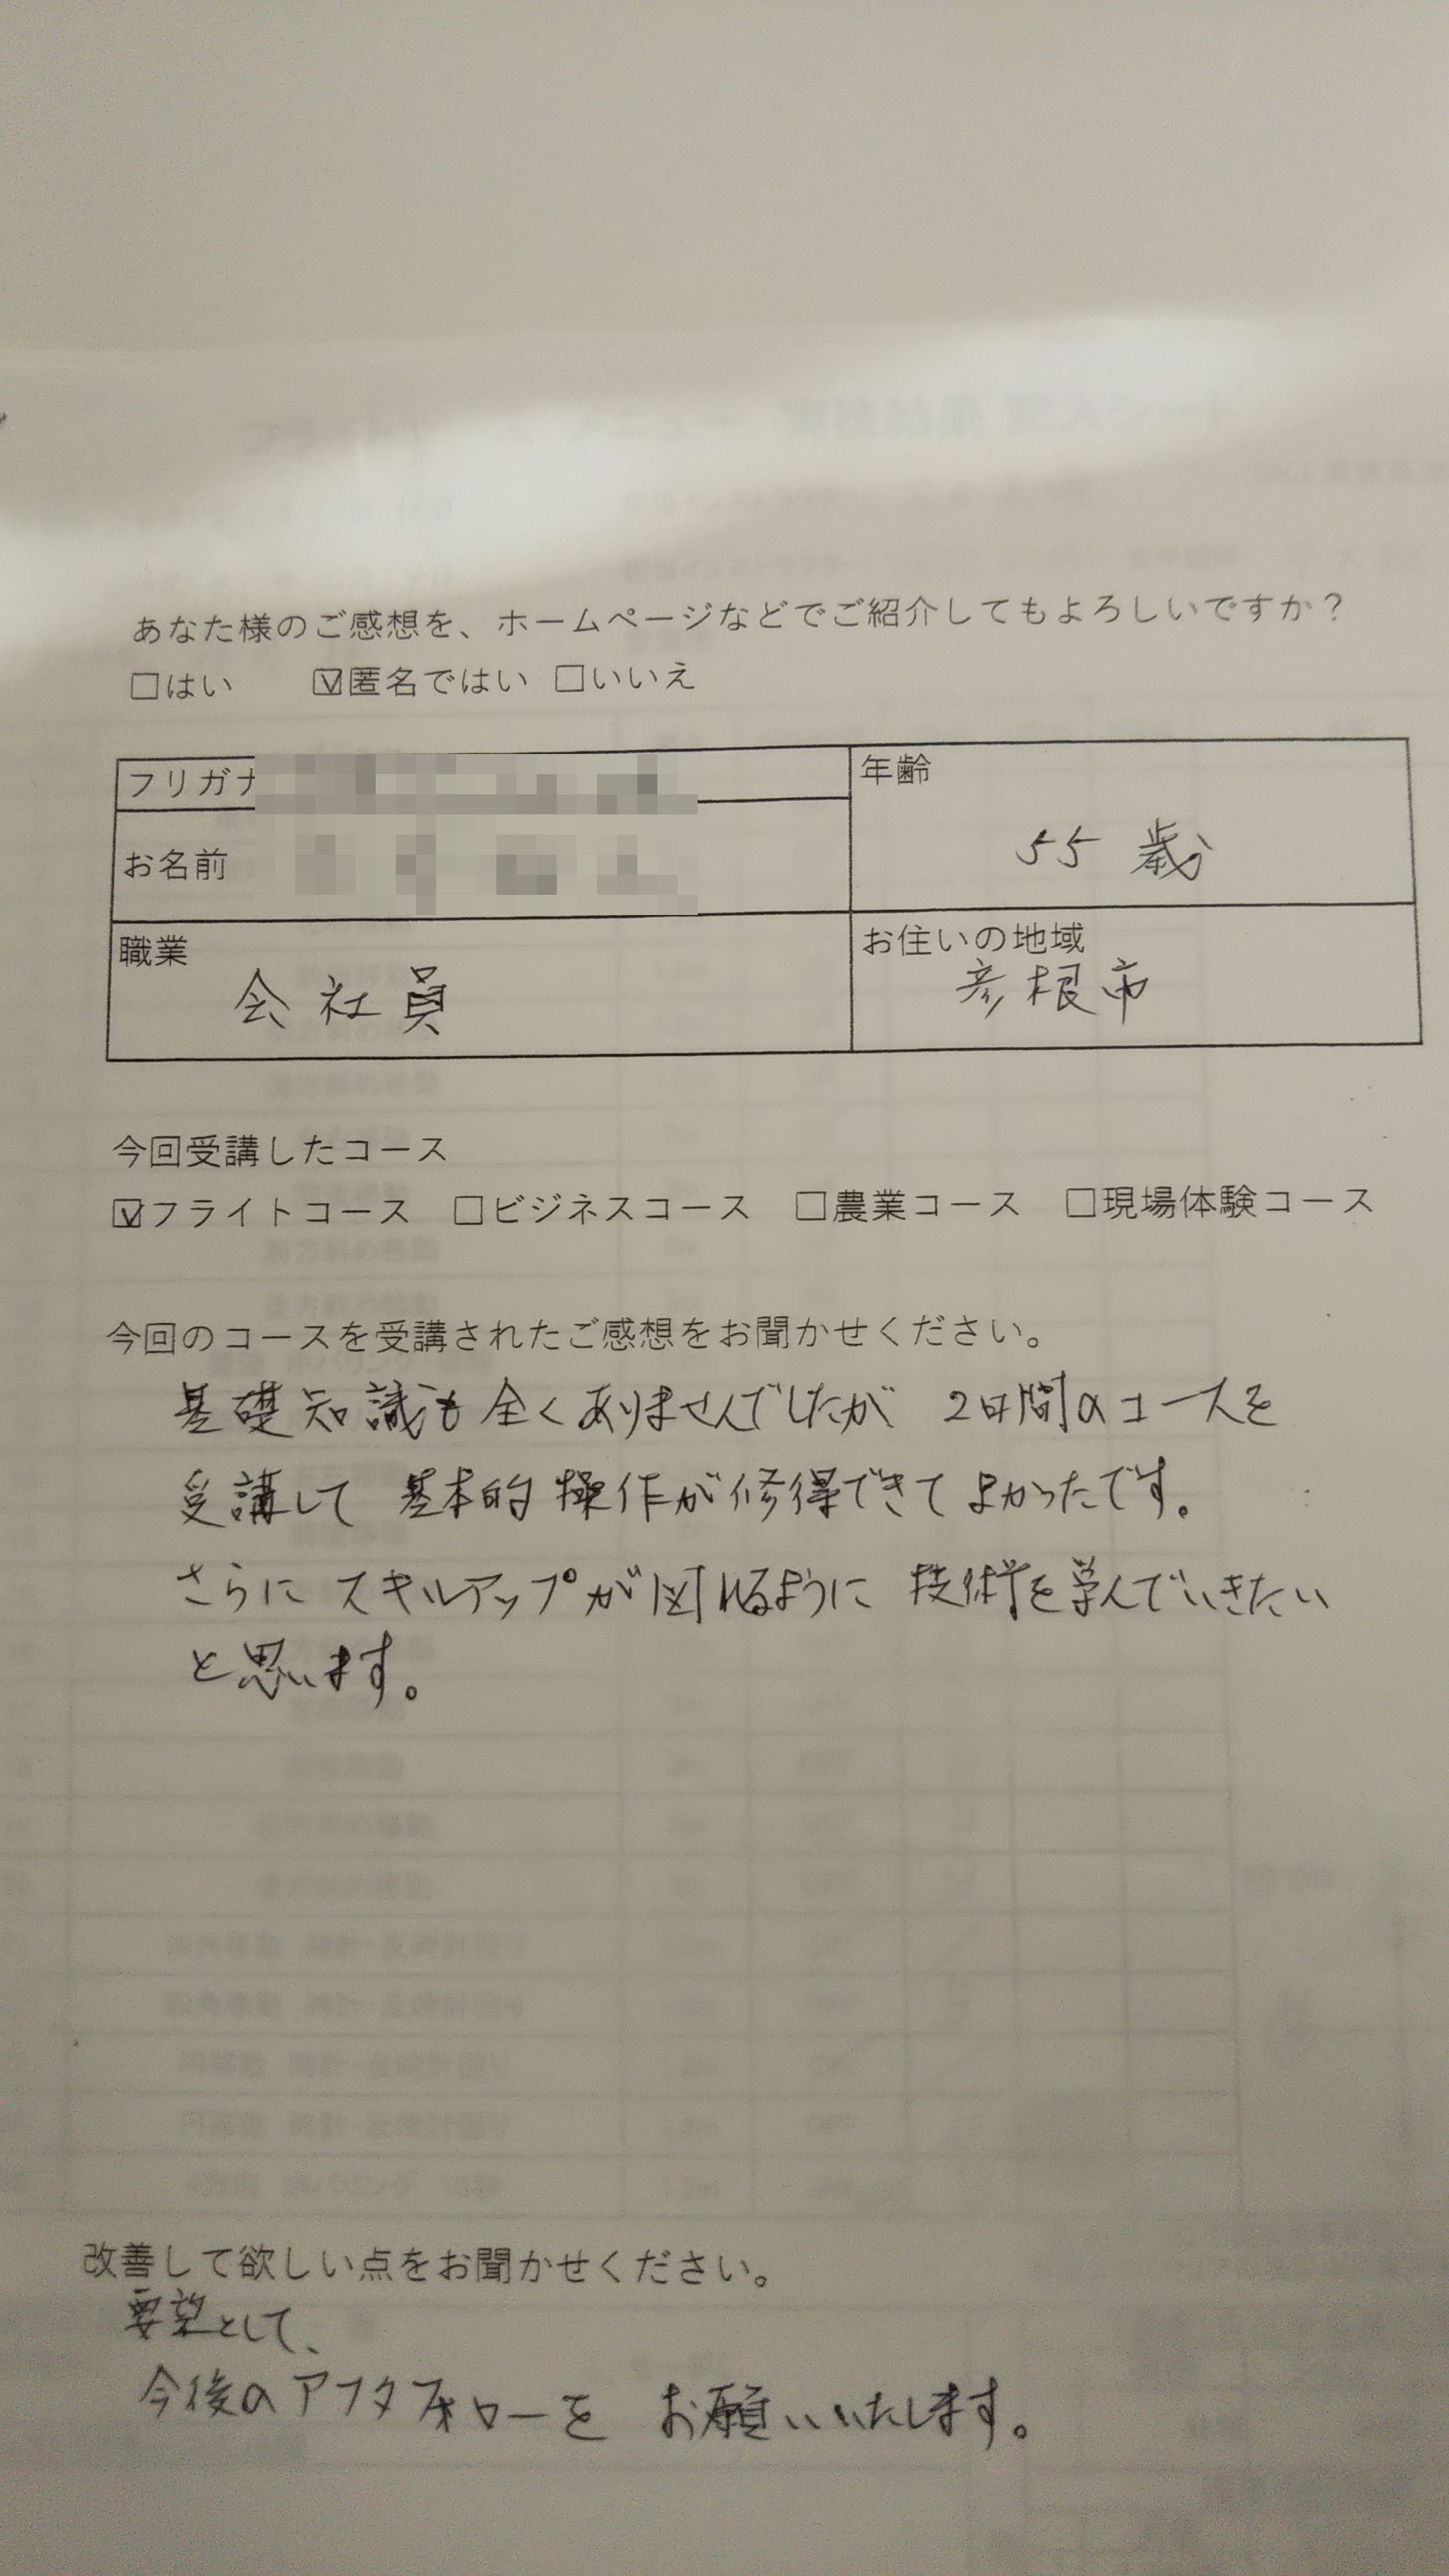 あなた様のご感想を、ホームページなどでご紹介してもよろしいですか？
□はい ☑匿名ではい □いいえ
フリガナ
お名前
年齢
55 歳
職業
会社員
お住いの地域
彦根市
今回受講したコース
☑フライトコース □ビジネスコース □農業コース □現場体験コース
今回のコースを受講されたご感想をお聞かせください。
基礎知識も全くありませんでしたが 2日間のコースを
受講して 基本的操作が修得できて よかったです。
さらに スキルアップが図れるように 技術を学んでいきたい
と思います。
改善して欲しい点をお聞かせください。
要望として、
今後のアフタフォローを お願いいたします。